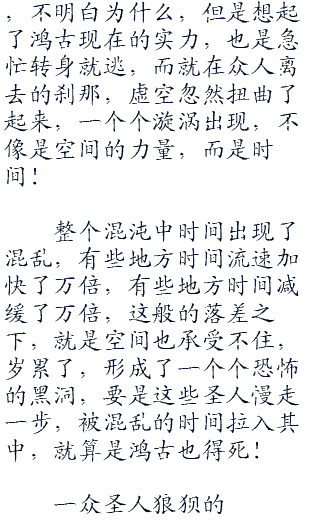 ，不明白为什么，但是想起
了鸿古现在的实力，也是急
忙转身就逃，而就在众人离
去的刹那，虚空忽然扭曲了
起来，一个个漩涡出现，不
像是空间的力量，而是时
间！
整个混沌中时间出现了
混乱，有些地方时间流速加
快了万倍，有些地方时间减
缓了万倍，这般的落差之
下，就是空间也承受不住，
岁累了，形成了一个个恐怖
的黑洞，要是这些圣人漫走
一步，被混乱的时间拉入其
中，就算是鸿古也得死！
一众圣人狼狈的